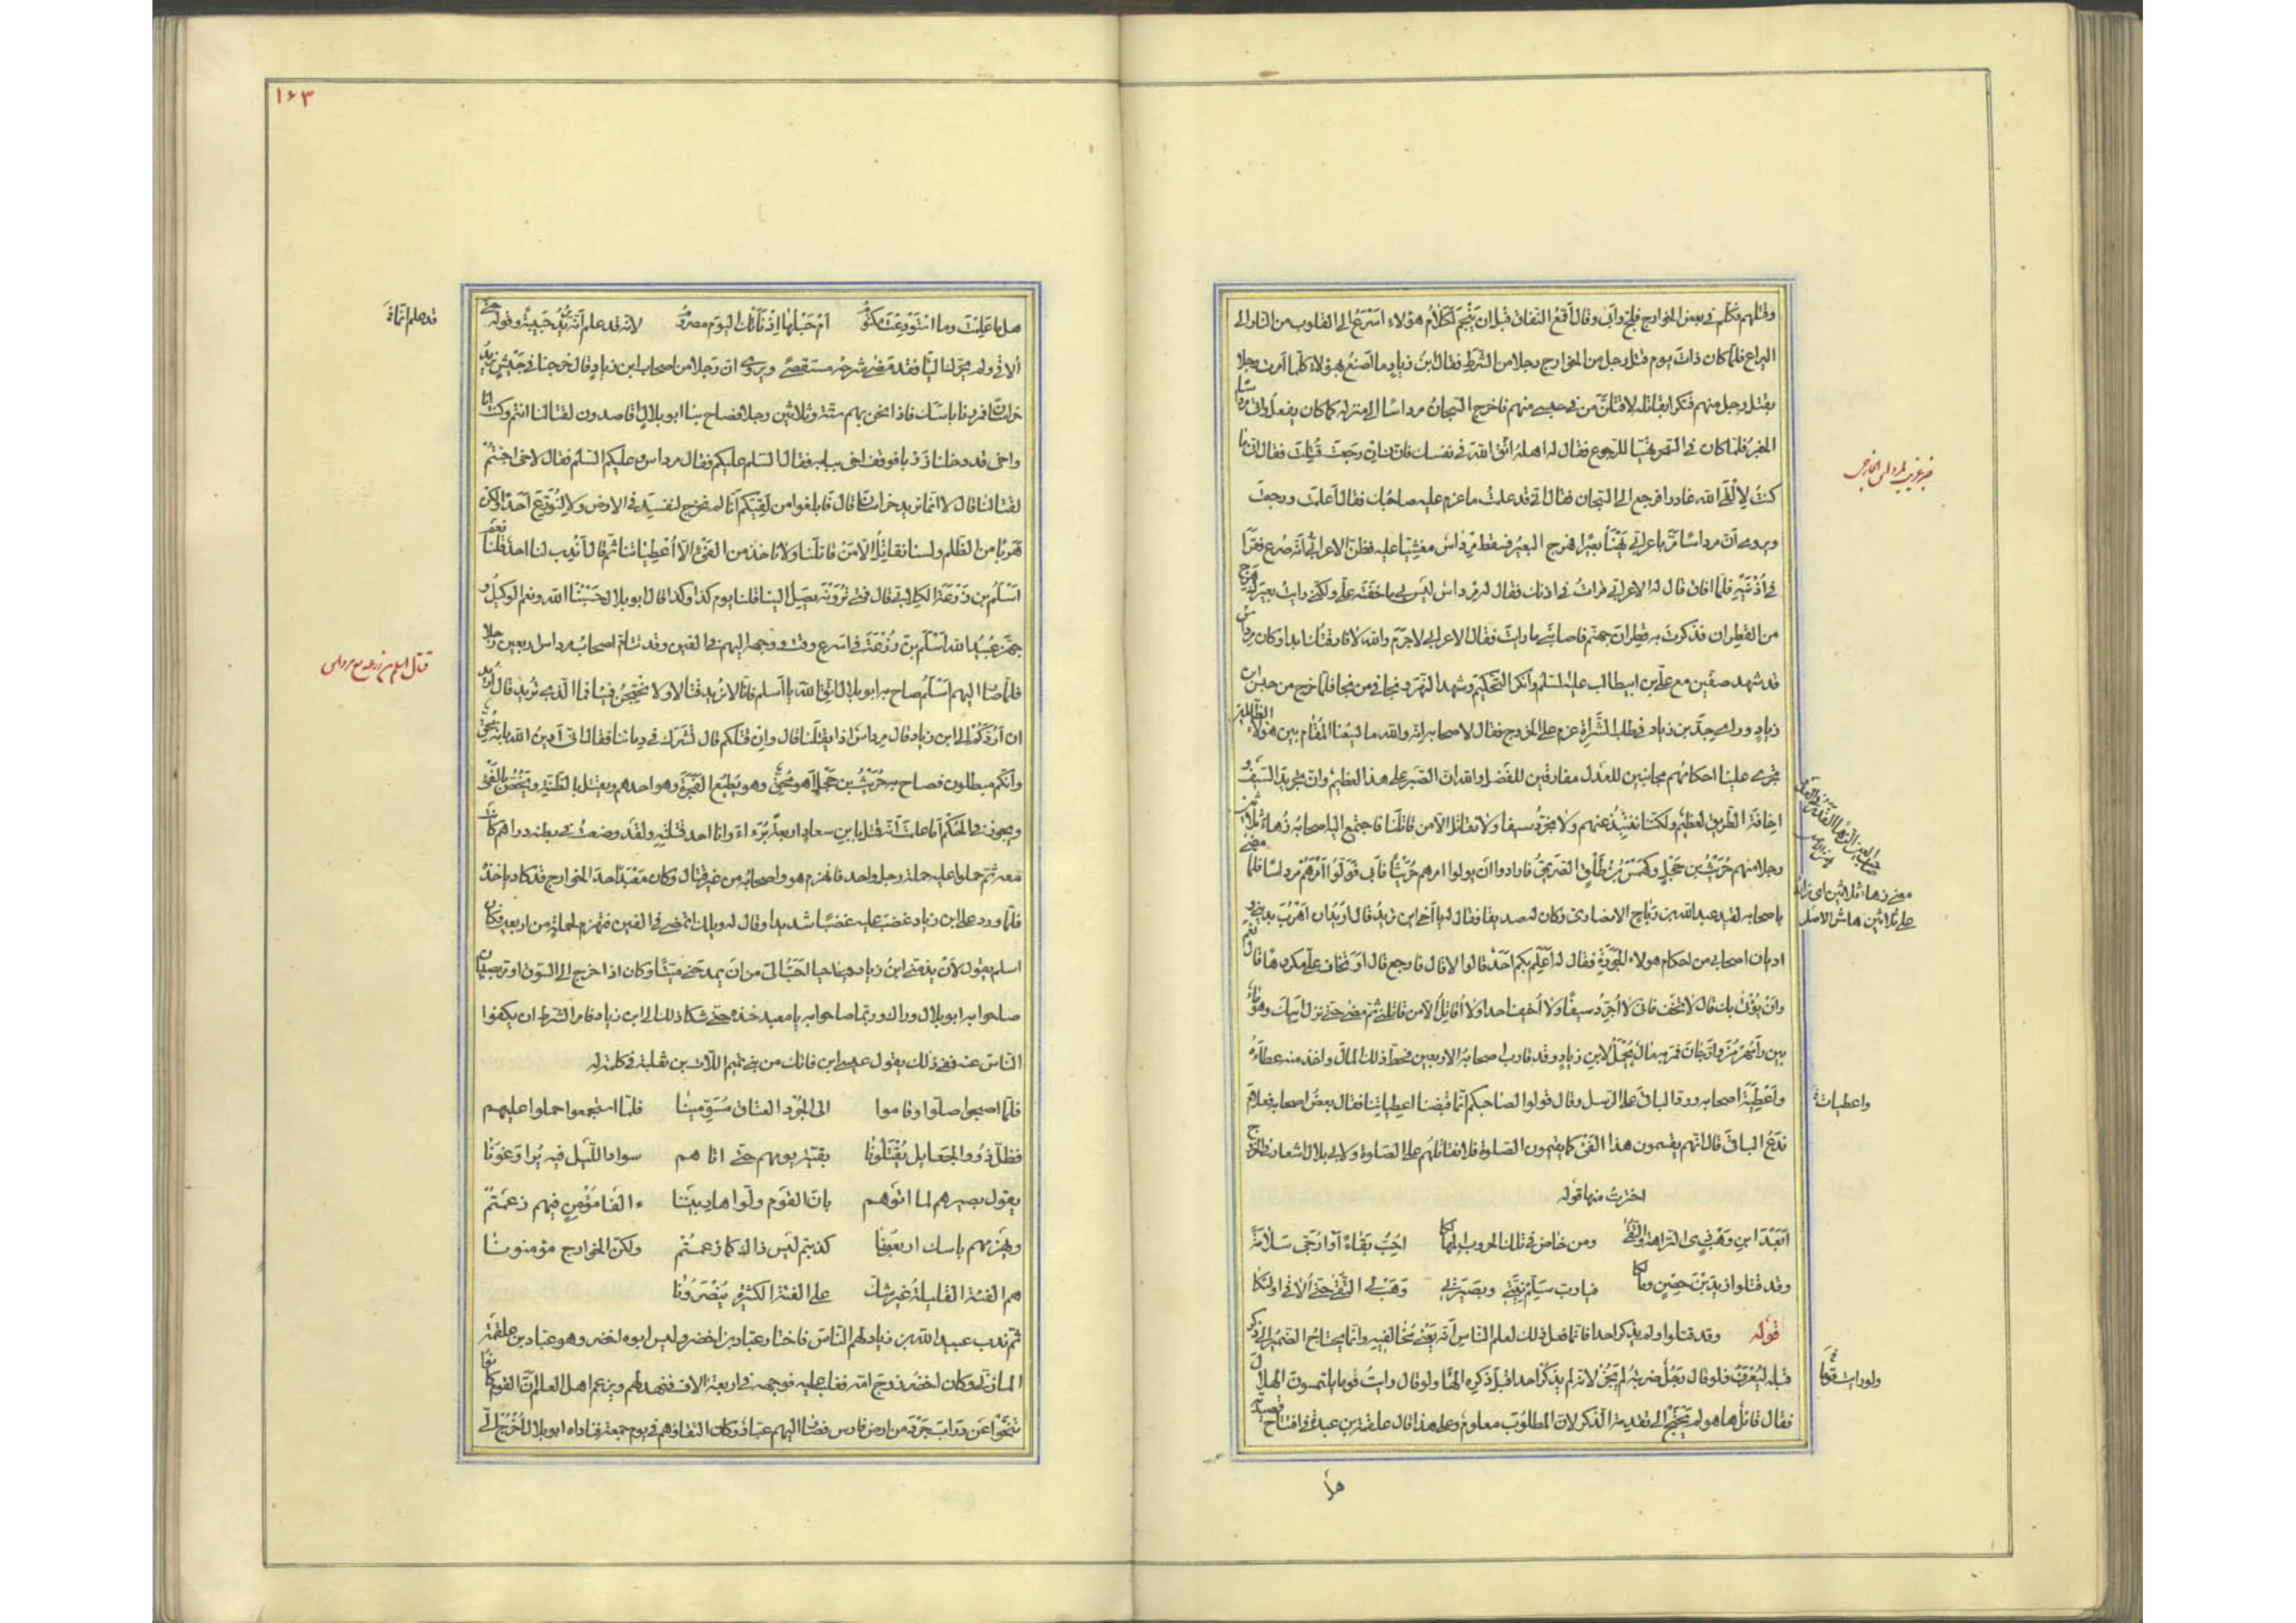 وقتلهم فكلم في بعض الخوارج فلج وابى وقال اقمع النفاق قبل ان ينجم لكلام هؤلاء اسرع الى القلوب من النار الى
اليراع فلما كان ذات يوم قتل رجل من الخوارج رجلا من الشرط فقال ابن زياد ما اصنع بهؤلاء كلما امرت رجلا
بقتل رجل منهم فتكوا بقاتله لاقتلن من في حبسي منهم فاخرج السجان مرداسا الى منزله كما كان يفعل واتى مرداسا
الخبر فلما كان في السحر تهيا للرجوع فقال له اهله اتق الله في نفسك فانك ان رجعت قتلت فقال انى ما
كنت لالقى الله غادرا فرجع الى السجان فقال انى قد علمت ما عزم عليه صاحبك فقال اعلمت ورجعت
ويروى ان مرداسا مر باعرابي يهنأ بعيرا فهرج البعير فسقط مرداس مغشيا عليه فظن الاعرابي انه صرع فقرا
في اذنيه فلما افاق قال له الاعرابي قرات في اذنك فقال له مرداس ليس بي ما خفته علي ولكني رايت بعيرك هرج
من القطران فذكرت به قطران جهنم فاصابني ما رايت فقال الاعرابي لا جرم والله لا فارقتك ابدا وكان مرداس
قد شهد صفين مع علي بن ابيطالب عليه السلم وانكر التحكيم وشهد النهر ونجا في من نجا فلما خرج من حبس ابن
زياد وراى جد بن زياد في طلب الشراة عزم على الخروج فقال لاصحابه انه والله ما يسعنا المقام بين هؤلاء الظالمين
تجرى علينا احكامهم مجانبين للعدل مفارقين للفضل والله ان الصبر على هذا لعظيم وان تجريد السيف و
اخافة الطريق لعظيم ولكنا ننتبذ عنهم ولا نجرد سيفا ولا نقاتل الا من قاتلنا فاجتمع اليه اصحابه زهاء ثلاثين
رجلا منهم حريث بن حجل وكهمس بن طلق الصريمي فارادوا ان يولوا امرهم حريثا فابى فولوا امرهم مرداسا فلما مضى
باصحابه لقيه عبد الله بن رباح الانصارى وكان له صديقا فقال له يا اخي اين تريد قال اريد ان اهرب بديني و
اديان اصحابي من احكام هولاء الجورة فقال له اعلم بكم احد قالوا لا قال فارجع قال او تخاف علي مكروها قال نعم
وان يؤتى بك قال لا تخف فانى لا اجرد سيفا ولا اخيف احدا ولا اقاتل الا من قاتلني ثم مضى حتى نزل اسك وهو ماء
بين رامهرمز وارجان فمر به مال يحمل لابن زياد وقد قارب اصحابه الاربعين فحط ذلك المال واخذ منه عطاءه
واعطية اصحابه ورد الباقى على الرسل وقال قولوا لصاحبكم انما قبضنا اعطياتنا فقال بعض اصحابه فعلام
ندع الباقى قال انهم يقسمون هذا الفئ كما يقيمون الصلوة فلا نقاتلهم على الصلوة ولابى بلال اشعار في الخروج
اخترت منها قوله
ابعد ابن وهب ذى النزاهة والتقى ومن خاض في تلك الحروب المهالكا احب بقاء او ارجى سلامة
وقد قتلوا زيد بن حصين ومالكا فيارب سلم نيتي وبصيرتي وهب لي التقى حتى الاقى اولئكا
قوله وقد قتلوا ولم يذكر احدا فانما فعل ذلك لعلم الناس انه يعني مخالفيه وانما يحتاج الضمير الى ذكر
قبله ليعرف فلو قال رجل ضربته لم يجز لانه لم يذكر احدا قبل ذكره الهاء ولو قال رايت قوما يلتمسون الهلال
فقال قائل ها هو لم يحتج الى تقدمة الذكر لان المطلوب معلوم وعلى هذا قال علقمة بن عبدة في افتتاح قصيدته
هل
واعطيات
ولو رايت قوما
معنى زهاء ثلاثين اى زائد
على ثلاثين هامش الاصل
١٤٣
هل ما علمت وما استودعت مكتوم ام حبلها اذ نأتك اليوم مصروم لانه قد علم انه يريد حبيبة وقوله حتى
الاقى ولم يحرك اليا فقد مضى شرحه مستقصى ويروى ان رجلا من اصحاب ابن زياد قال خرجنا في جيش نريد
خراسان فمررنا باسك فاذا نحن بهم ستة وثلاثين رجلا فصاح بنا ابو بلال اقاصدون لقتالنا انتم وكنت انا
واخى قد دخلنا زربا فوقف اخى ببابه فقال السلم عليكم فقال مرداس وعليكم السلم فقال لاخى اجئتم
لقتالنا قال لا انما نريد خراسان قال فابلغوا من لقيكم انا لم نخرج لنفسد في الارض ولا لنروع احدا ولكن
هربا من الظلم ولسنا نقاتل الا من قاتلنا ولا ناخذ من الفئ الا اعطياتنا ثم قال اندب لنا احد قلنا نعم
اسلم بن زرعة الكلابي قال فمتى ترونه يصل الينا قلنا يوم كذا وكذا قال ابو بلال حسبنا الله ونعم الوكيل و
جهز عبيد الله اسلم بن زرعة في اسرع وقت ووجهه اليهم في الفين وقد تتام اصحاب مرداس اربعين رجلا
فلما صار اليهم اسلم صاح به ابو بلال اتق الله يا اسلم فانا لا نريد قتالا ولا نحتجز فيئا فما الذى تريد قال اريد
ان اردكم الى ابن زياد قال مرداس اذا يقتلنا قال وان قتلكم قال تشرك في دمائنا فقال انى ادين الله بانه محق
وانكم مبطلون فصاح به حريث بن حجل اهو محق وهو يطيع الفجرة وهو احدهم ويقتل بالظنة ويخص بالفئ
ويجور في الحكم اما علمت انه قتل بابن سعاد اربعة برءاء وانا احد قتلته ولقد وضعت في بطنه دراهم كانت
معه ثم حملوا عليه حملة رجل واحد فانهزم هو واصحابه من غير قتال وكان معبد احد الخوارج قد كاد ياخذه
فلما ورد على ابن زياد غضب عليه غضبا شديدا وقال له ويلك اتمضى في الفين فتنهزم لحملة من اربعين فكان
اسلم يقول لان يذمني ابن زياد حيا احب الى من ان يمدحني ميتا وكان اذا خرج الى السوق او مر بصبيان
صاحوا به ابو بلال وراك وربما صاحوا به يا معبد خذه حتى شكا ذلك الى ابن زياد فامر الشرط ان يكفوا
الناس عنه ففي ذلك يقول عيسى ابن فاتك من بني تميم اللات بن ثعلبة في كلمة له
فلما اصبحوا صلوا وقاموا الى الجرد العتاق مسومينا فلما استجمعوا حملوا عليهم
فظل ذوو الجعايل يقتلونا بقية يومهم حتى اتاهم سواد الليل فيه يراوغونا
يقول بصيرهم لما اتوهم بان القوم ولوا هاربينا ءالفا مؤمن فيهم زعمتم
ويهزمهم باسك اربعونا كذبتم ليس ذاك كما زعمتم ولكن الخوارج مؤمنونا
هم الفئة القليلة غير شك على الفئة الكثيرة ينصرونا
ثم ندب عبيد الله بن زياد لهم الناس فاختار عباد بن اخضر وليس ابوه اخضر وهو عباد بن علقمة
المازني وكان اخضر زوج امه فغلب عليه فوجهه في اربعة الاف فنهد لهم ويزعم اهل العلم ان القوم كانوا
تنحوا عن دراب جرد من ارض فارس فصار اليهم عباد وكان التقاؤهم في يوم جمعة فناداه ابو بلال اخرج الى
قد علم انما
قتال اسلم بن زرعه مع مرداس